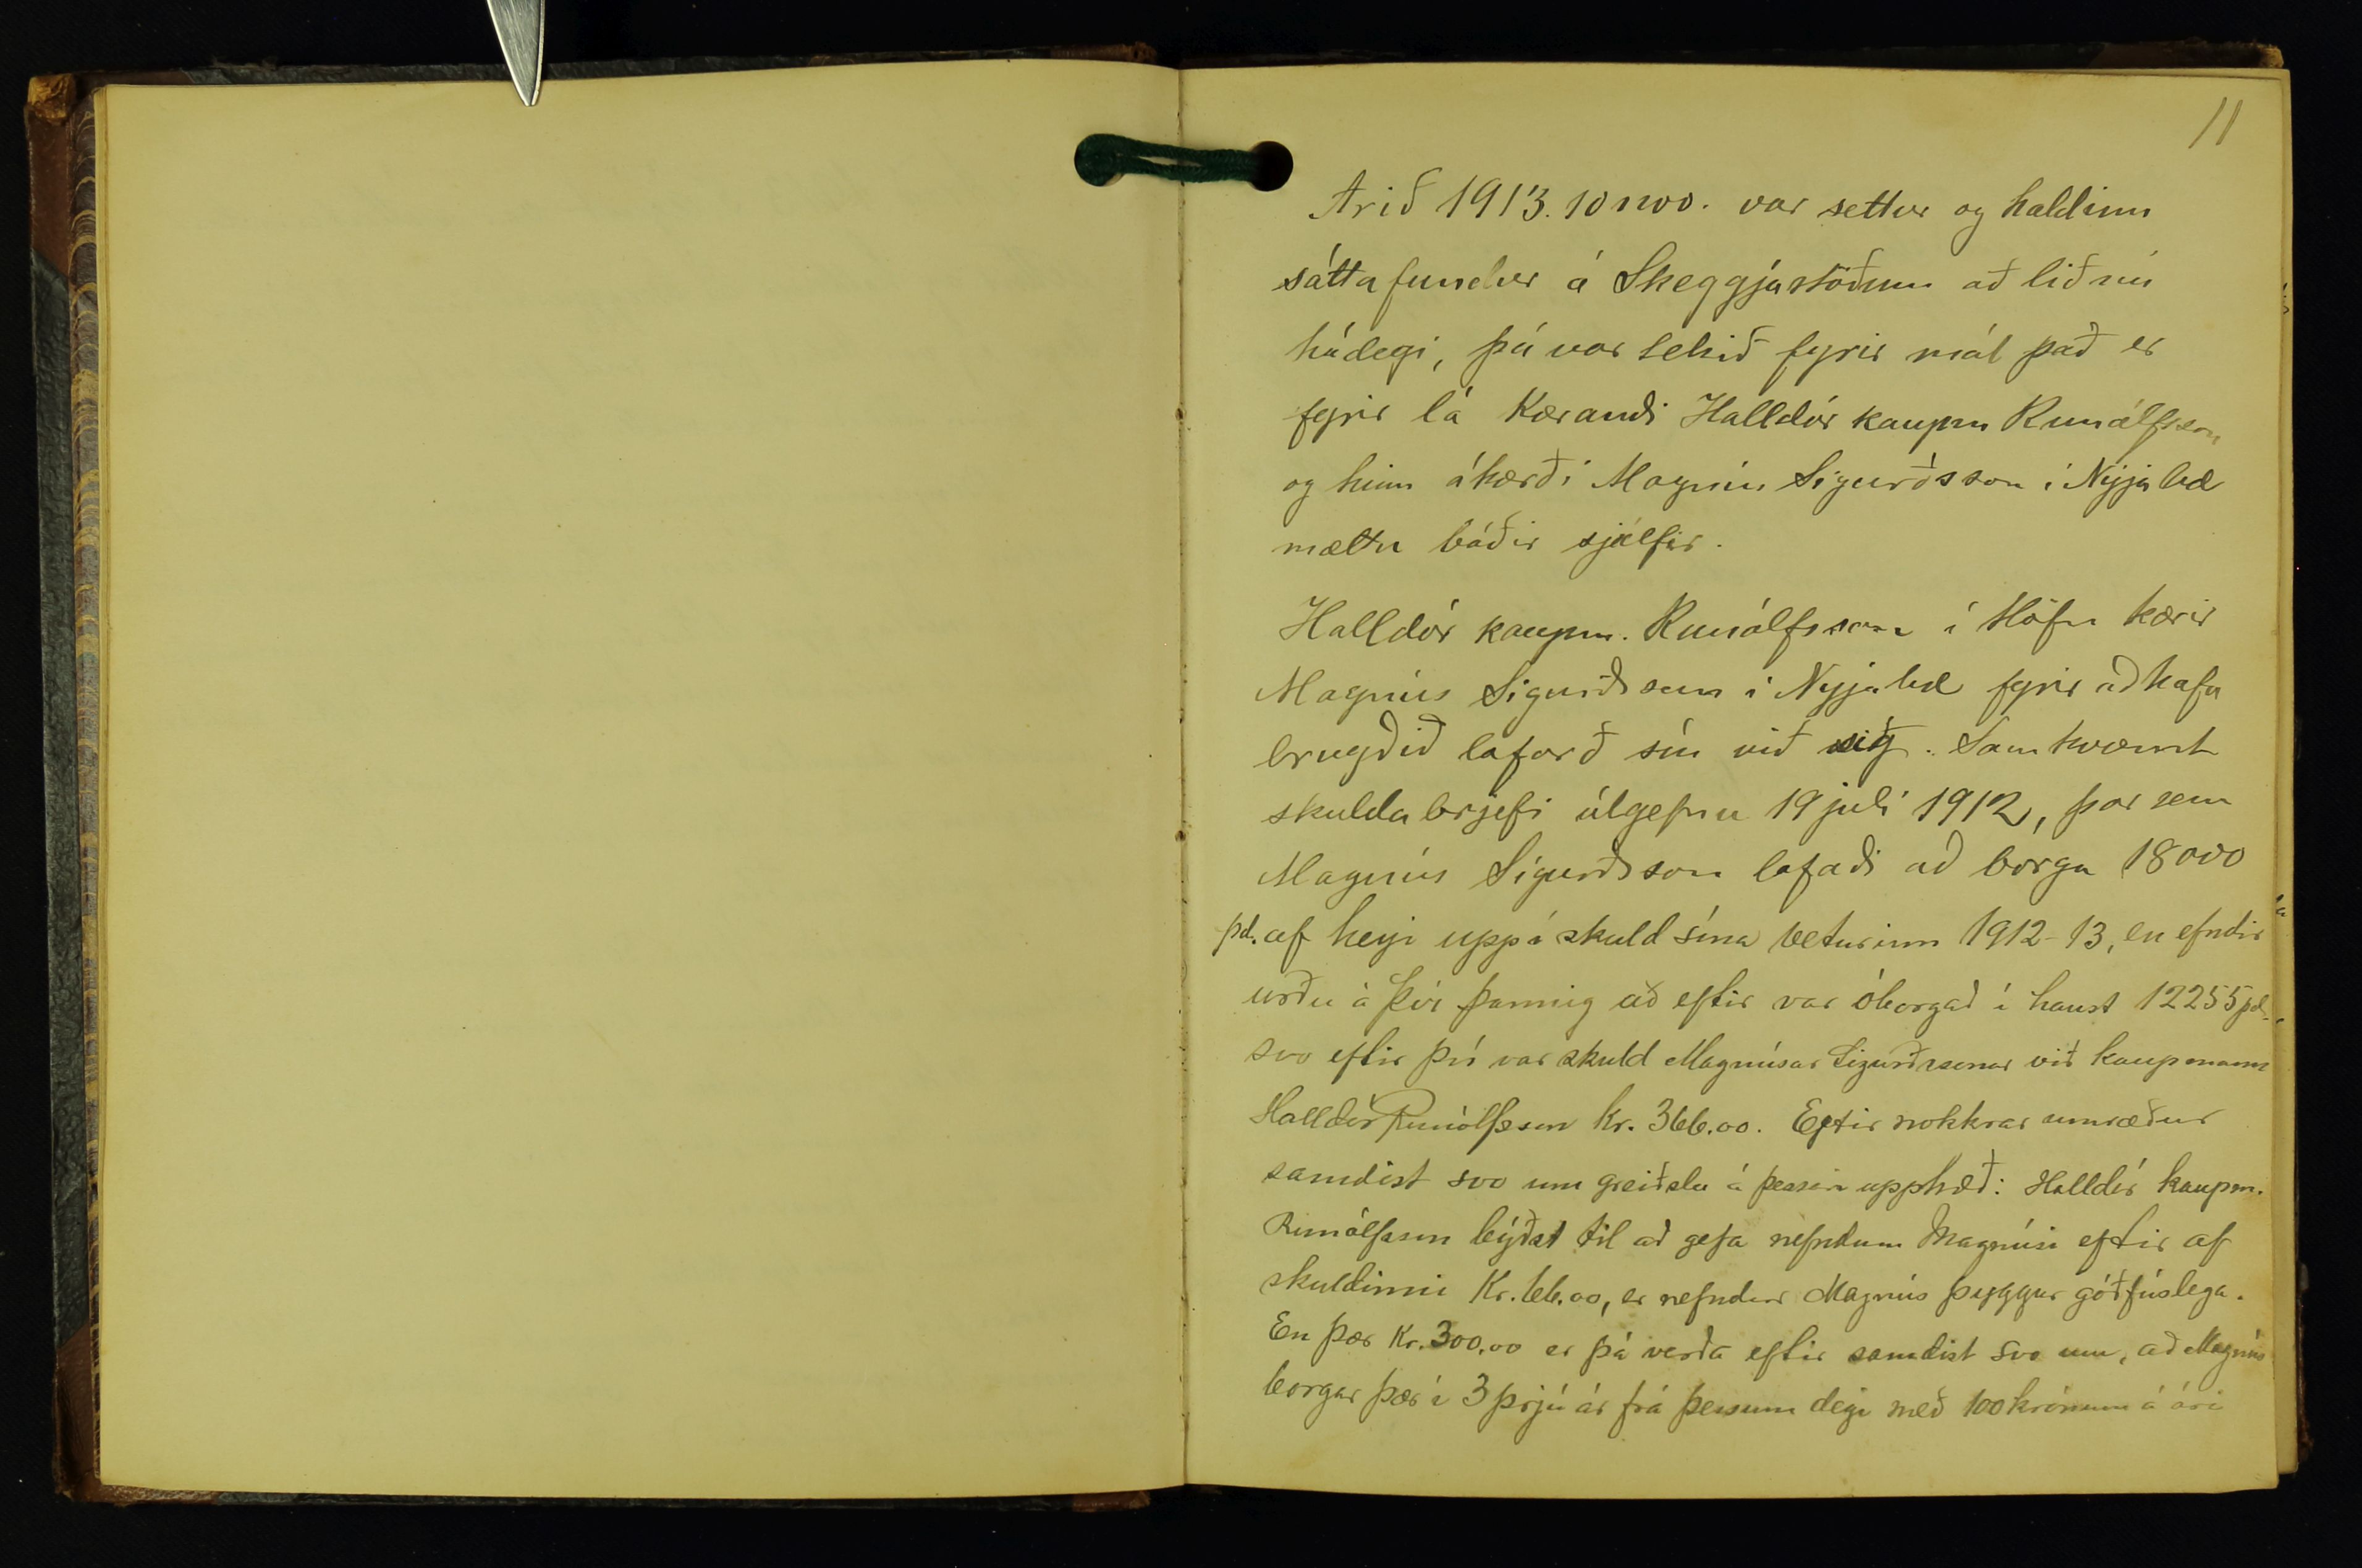 11
Arið 1913. 10 nov. var settur og haldinn
sáttafundur á Skeggjastöðum að liðnu
hádegi, þá var tekið fyrir mál það er
fyrir lá Kærandi Halldór kaupm Runólfsson
og hinn ákærði Magnús Sigurðsson í Nýjabæ
mættu báðir sjálfir.
Halldór kaupm. Runólfsson í Höfn kærir
Magnús Sigurðsson í Nýjabæ fyrir að hafa
brugðið loforð sín við sig. Samkvæmt
skuldabrjefi útgefnu 19 júlí 1912, þar sem
Magnús Sigurðsson lofaði að borga 18000
pd. af heyi uppí skuld sína veturinn 1912-13, en efndir
urðu á því þannig að eftir var óborgað í haust 12255 pd.
svo eftir því var skuld Magnúsar Sigurðssonar við kaupmann
Halldór Runólfsson kr. 366.00. Eftir nokkrar umræður
samdist svo um greiðslu á þessari upphæð: Halldór kaupm.
Runólfsson býðst til að gefa nefndum Magnúsi eftir af
skuldinni Kr. 66.00, er nefndur Magnús þyggur góðfúslega.
En þær Kr. 300.00 er þá verða eftir samdist svo um, að Magnús
borgar þær í 3 þrjú ár frá þessum degi með 100 krónum á ári